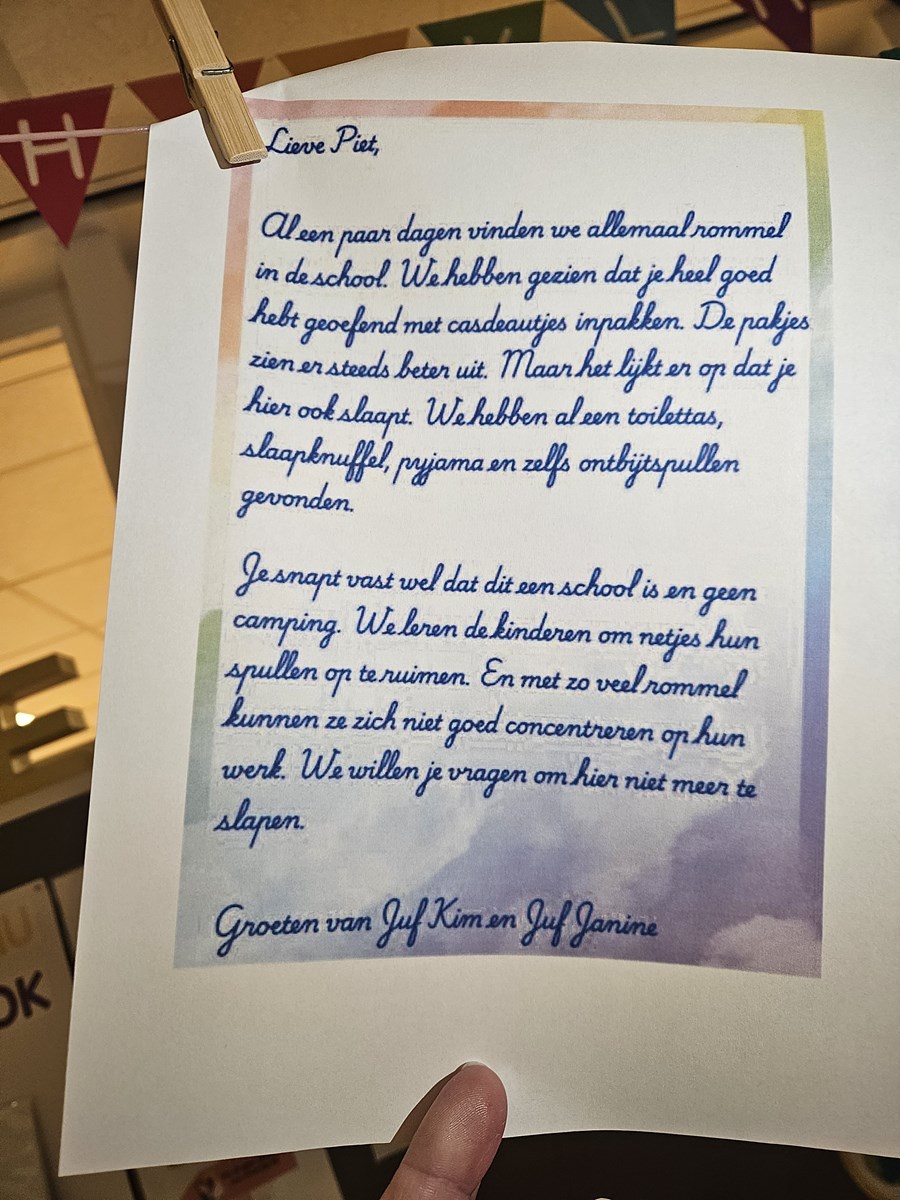 H
Lieve Piet,
Al een paar dagen vinden we allemaal rommel
in de school. We hebben gezien dat je heel goed
hebt geoefend met casdeautjes inpakken. De pakjes
zien er steeds beter uit. Maar het lijkt er op dat je
hier ook slaapt. We hebben al een toilettas,
slaapknuffel, pyjama en zelfs ontbijtspullen
gevonden.
Je snapt vast wel dat dit een school is en geen
camping. We leren de kinderen om netjes hun
spullen op te ruimen. En met zo veel rommel
kunnen ze zich niet goed concentreren op hun
werk. We willen je vragen om hier niet meer te
slapen.
Groeten van Juf Kim en Juf Janine
E
OK